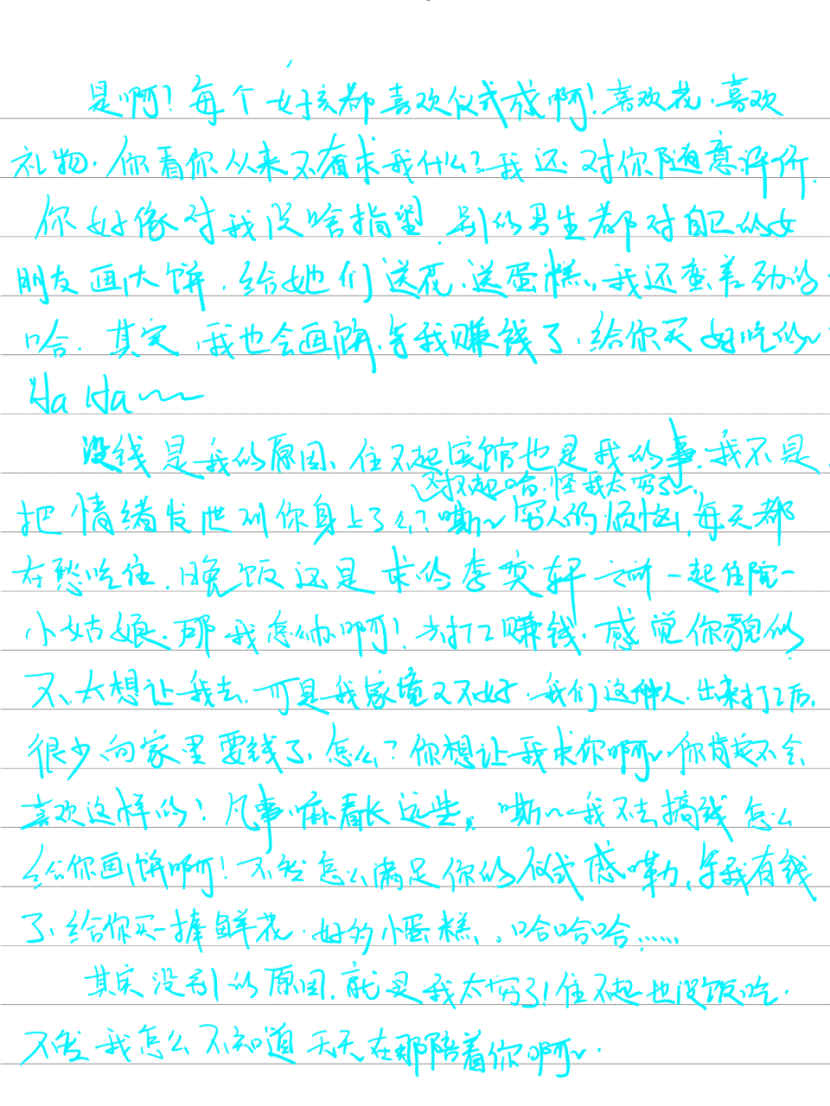 是啊！每个女孩都喜欢仪式感啊！喜欢花、喜欢
礼物。你看你从来不有求我什么？我还对你随意评价。
你好像对我没啥指望。别的男生都对自己的女
朋友画大饼、给她们送花、送蛋糕。我还蛮差劲的
哈。其实，我也会画饼、等我赚钱了，给你买好吃的～
Ha Ha～～
没钱是我的原因、住不起宾馆也是我的事、我不是
对不起哈、怪我太穷了～
把情绪发泄到你身上了么？嘶～穷人的烦恼，每天都
在愁吃住、晚饭还是求的李奕轩之前一起住院一
小姑娘。那我怎么办啊！去打工赚钱、感觉你貌似
不太想让我去、可是我家境又不好、我们这种人、出来打工后、
很少向家里要钱了、怎么？你想让我求你啊～你肯定不会
喜欢这样的！凡事嘛看长远些。嘶～我不去搞钱怎么
给你画饼啊！不然怎么满足你的仪式感嘞、等我有钱
了、给你买一捧鲜花、好多小蛋糕。哈哈哈……
其实没别的原因、就是我太穷了！住不起也没饭吃、
不然我怎么不知道天天在那陪着你啊～